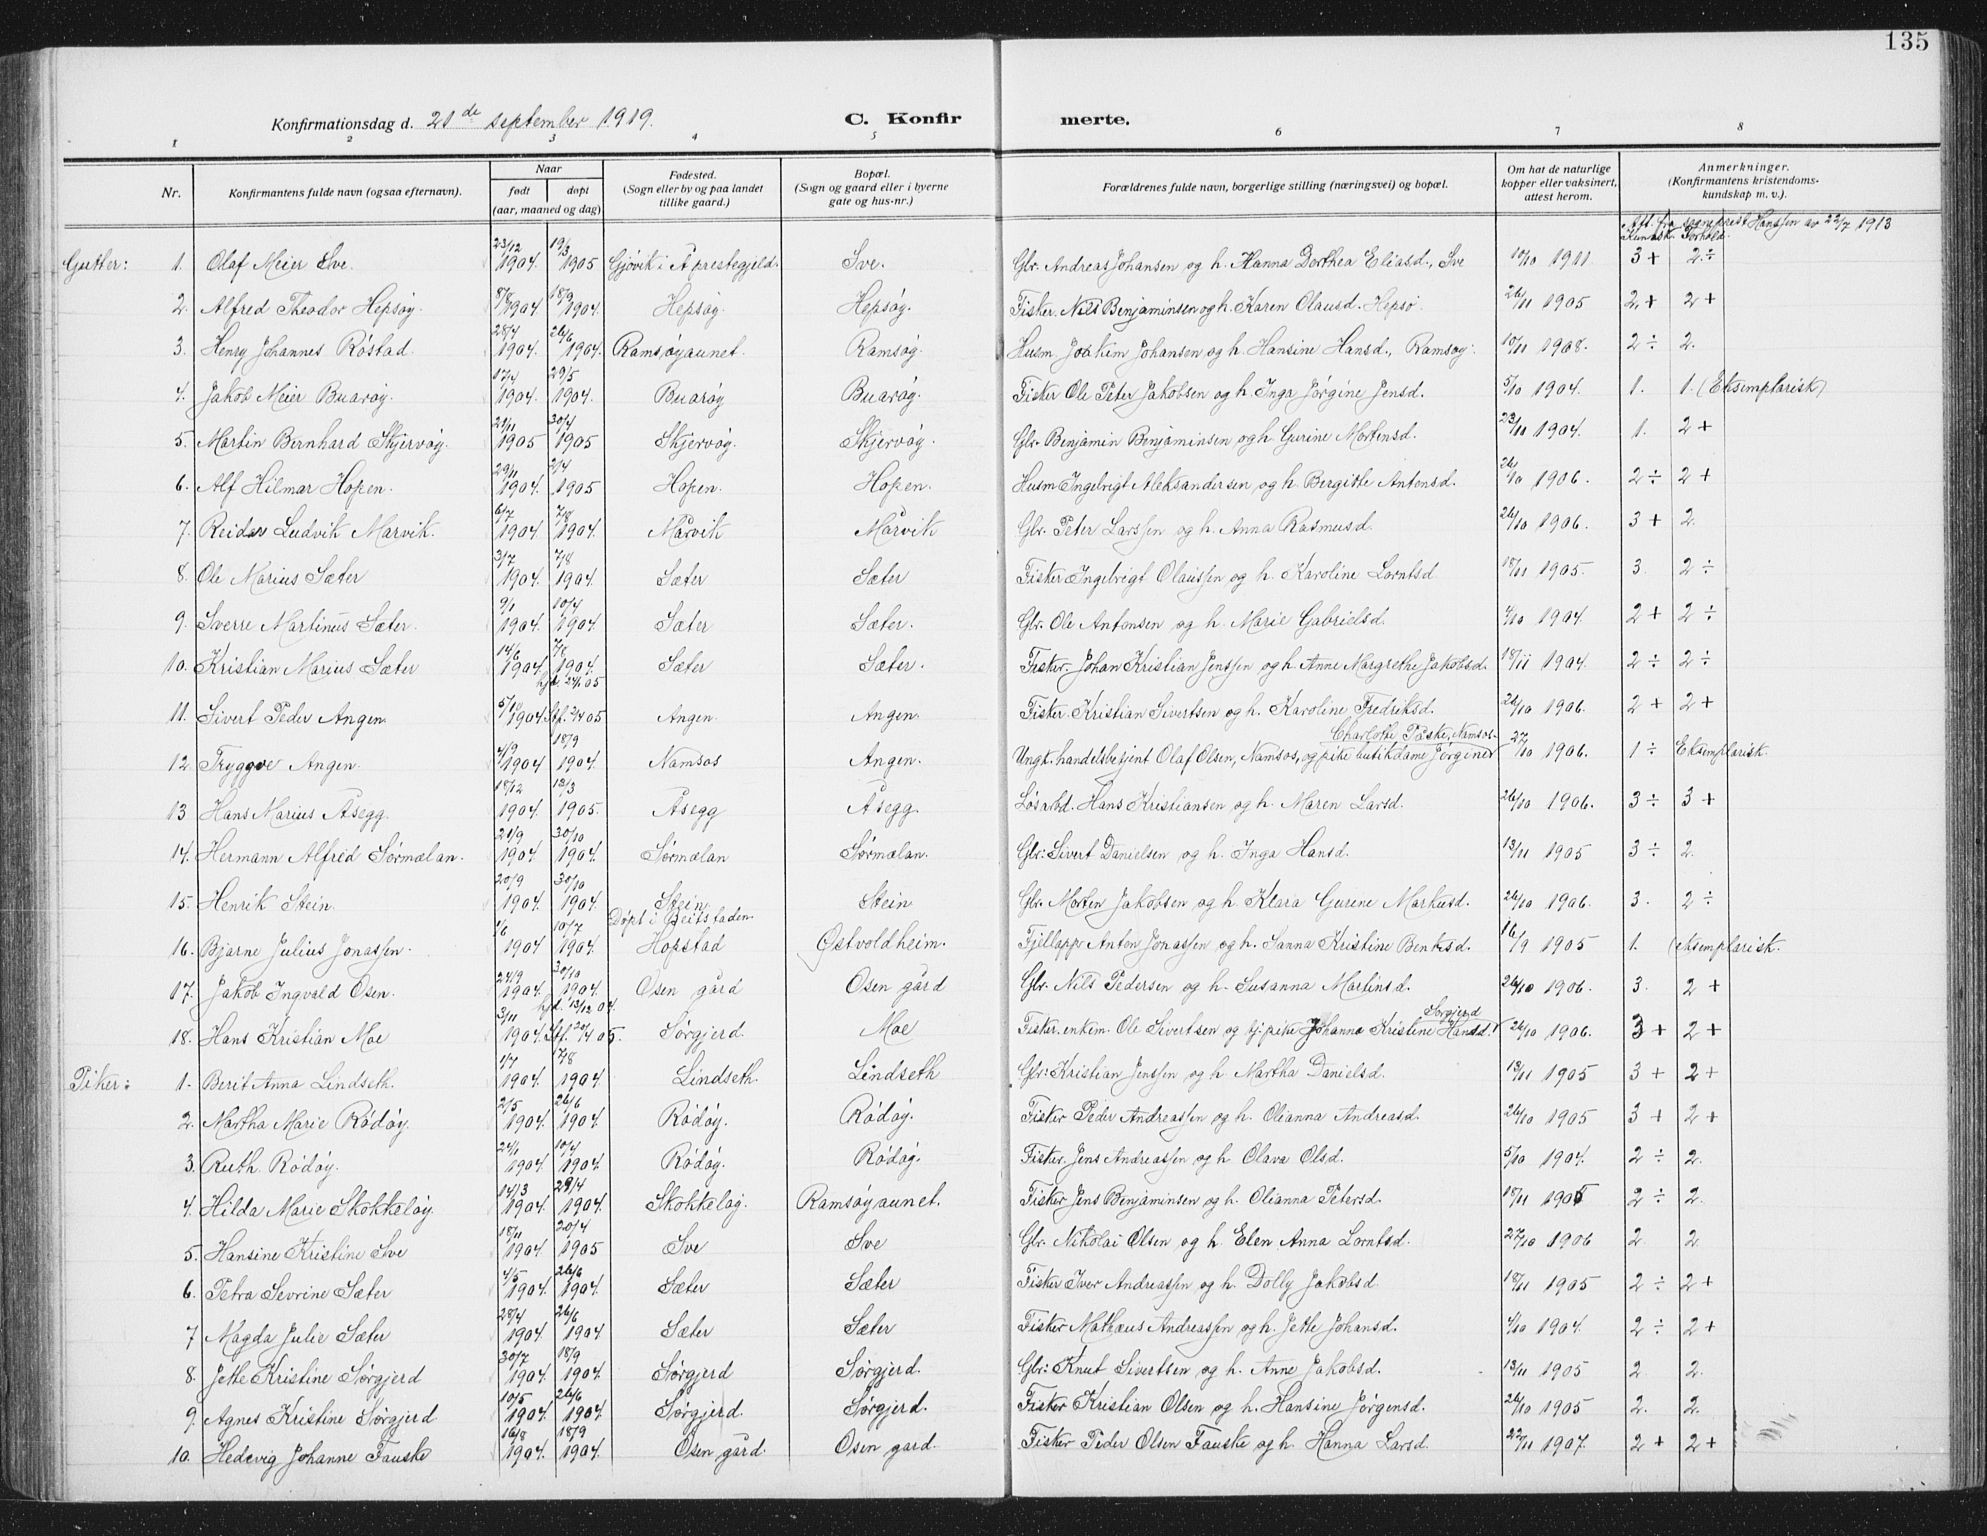 135
Konfirmationsdag d. 21de september 1919.
C. Konfirmerte.
1 2 3 4 5 6 7 8
Nr.
Konfirmantens fulde navn (ogsaa efternavn).
Naar
født døpt
(aar, maaned og dag)
Fødested.
(Sogn eller by og paa landet
tillike gaard.)
Bopæl.
(Sogn og gaard eller i byerne
gate og hus-nr.)
Forældrenes fulde navn, borgerlige stilling (næringsvei) og bopæl.
Om hat de naturlige
kopper eller vaksinert,
attest herom.
Anmerkninger.
(Konfirmantens kristendoms-
kundskap m. v.).
Att. fra sogneprest Hanssen av 22/7 1913
Kundsk. Forhold.
Gutter: 1. Olaf Meier Sve. 23/12 1904. 19/3 1905 Gjøvik i Å prestegjeld. Sve. Gbr. Andreas Johansen og h. Hanna Dorthea Eliasd., Sve 10/10 1911. 3+ 2÷
2. Alfred Theodor Hepsøy. 8/8 1904. 18/9 1904. Hepsøy. Hepsøy. Fisker. Nils Benjaminsen og h. Karen Olausd. Hepsø. 26/11 1905 2+ 2+
3. Henry Johannes Röstad. 28/4 1904. 26/6 1904. Ramsøyaunet. Ramsøy. Husm. Joakim Johansen og h. Hansine Hansd., Ramsøy. 10/11 1908. 2÷ 2.
4. Jakob Meier Buarøy. 17/4 1904. 29/5 1904. Buarøy Buarøy. Fisker Ole Peter Jakobsen og h. Inga Jørgine Jensd. 5/10 1904. 1. 1. (Eksemplarisk)
5. Martin Bernhard Skjervøy. 21/11 1905 30/4 1905 Skjervøy. Skjervøy. Gbr. Benjamin Benjaminsen og h. Gurine Mortensd. 23/11 1904. 1. 2+
6. Alf Hilmar Hopen. 29/11 1904. 2/4 1905 Hopen. Hopen. Husm Ingebrigt Aleksandersen og h. Bergitte Antonsd. 26/10 1906. 2÷ 2+
7. Reidar Ludvik Marvik. 6/7 1904. 7/8 1904. Mårvik Mårvik Gbr. Peter Larssen og h. Anna Rasmusd. 26/10 1906. 3+ 2.
8. Ole Marius Sæter 3/7 1904. 7/8 1904. Sæter Sæter Fisker Ingebrigt Olaussen og h. Karoline Lorntsd 18/11 1905. 3. 2÷
9. Sverre Martinus Sæter. 9/1 1904. 10/4 1904. Sæter Sæter. Gbr. Ole Antonsen og h. Marie Gabrielsd. 4/10 1904. 2+ 2÷
10. Kristian Marius Sæter 14/6 1904. 7/8 1904. Sæter Sæter. Fisker. Johan Kristian Jenssen og h. Anne Margrethe Jakobsd. 18/11 1904. 2÷ 2÷
11. Sivert Peder Angen. 5/10 1904 hjd. 24/1 05 Stf. 2/4 05 Angen. Angen. Fisker Kristian Sivertsen og h. Karoline Fredriksd. 26/10 1906. 2+ 2+
12. Tryggve Angen. 4/9 1904 18/9 1904. Namsos Angen. Ungk. handelsbetjent Olaf Olsen, Namsos, og pike butikdame Jørgine Charlotte Paske, Namsos 27/10 1906. 1÷ Eksemplarisk.
13 Hans Marius Åsegg. 18/12 1904. 12/3 1905. Åsegg Åsegg. Løsarbd. Hans Kristiansen og h. Maren Larsd. 26/10 1906. 3÷ 3+
14. Hermann Alfred Sørmælan. 21/9 1904. 30/10 1904. Sørmelan Sørmelan. Gbr: Sivert Danielsen og h. Inga Hansd. 13/11 1905 3÷ 2.
15. Henrik Stein. 20/9 1904. 30/10 1904. Stein. Stein Gbr. Morten Jakobsen og h. Klara Gurine Markusd. 26/10 1906. 3. 2÷
16. Bjarne Julius Jonassen. 1/6 1904 10/7 1904. Døpt i Beitstaden Hopstad Østvoldheim. Fjellapp Anton Jonassen og h. Sanna Kristine Bentsd. 16/9 1905 1. (eksemplarisk.
17. Jakob Ingvald Osen. 24/9 1904. 30/10 1904. Osen gård Osen gård Gbr. Nils Pedersen og h. Susanna Martinsd. 26/10 1906. 3. 2+
18. Hans Kristian Moe 3/11 1904. hjd. 13/12 04. Stf. 20/4 05. Sørgjerd. Moe Fisker enkem. Ole Sivertsen og tj. pike Johanna Kristine Hansd. Sørgjerd 26/10 1906. 3+ 2+
Piker: 1. Berit Anna Lindseth. 1/7 1904. 17/8 1904 Lindseth. Lindseth Gbr: Kristian Jenssen og h. Martha Danielsd. 13/11 1905 3+ 2+
2. Martha Marie Rödöy. 2/5 1904. 26/6 1904. Rödöy. Rödöy. Fisker Peder Andreassen og h. Olianna Andreasd. 26/10 1905 3+ 2+
3. Ruth Rödöy. 24/1 1904. 10/4 1904. Rödöy. Rödöy. Fisker. Jens Andreassen og h Olava Olsd. 5/10 1904. 2÷ 2.
4. Hilda Marie Skokkeløy. 14/3 1904. 29/4 1904. Skokkeløy. Ramsøyaunet. Fisker Jens Benjaminsen og h. Olianna Petersd. 18/11 1905 2÷ 2.
5. Hansine Kristine Sve 18/11 1904. 20/4 1905 Sve Sve Gbr. Nikolai Olsen og h. Elen Anna Lorntsd. 27/10 1906 2. 2
6. Petra Sevrine Sæter 4/5 1904. 26/6 1904. Sæter Sæter Fisker Iver Andreassen og h. Dolly Jakobsd 18/11 1905 2÷ 2+
7 Magda Julie Sæter 28/4 1904. 26/6 1904 Sæter Sæter Fisker Mathæus Andreassen og h. Jette Johansd. 4/10 1904. 2÷ 2+
8. Jette Kristine Sørgjerd 30/7 1904. 18/9 1904. Sørgjerd Sørgjerd. Gbr: Knut Sivertsen og h. Anne Jakobsd. 13/11 1905 2 2.
9. Agnes Kristine Sørgjerd 10/5 1904. 26/6 1904. Sørgjerd. Sørgjerd. Fisker Kristian Olsen og h. Hansine Jørgensd. 26/10 1905 2. 2.
10. Hedevig Johanne Fauske 16/8 1904. 18/9 1904. Osen gård. Osen gard. Fisker Peder Olsen Fauske og h. Hanna Larsd. 22/11 1907. 2+ 2+